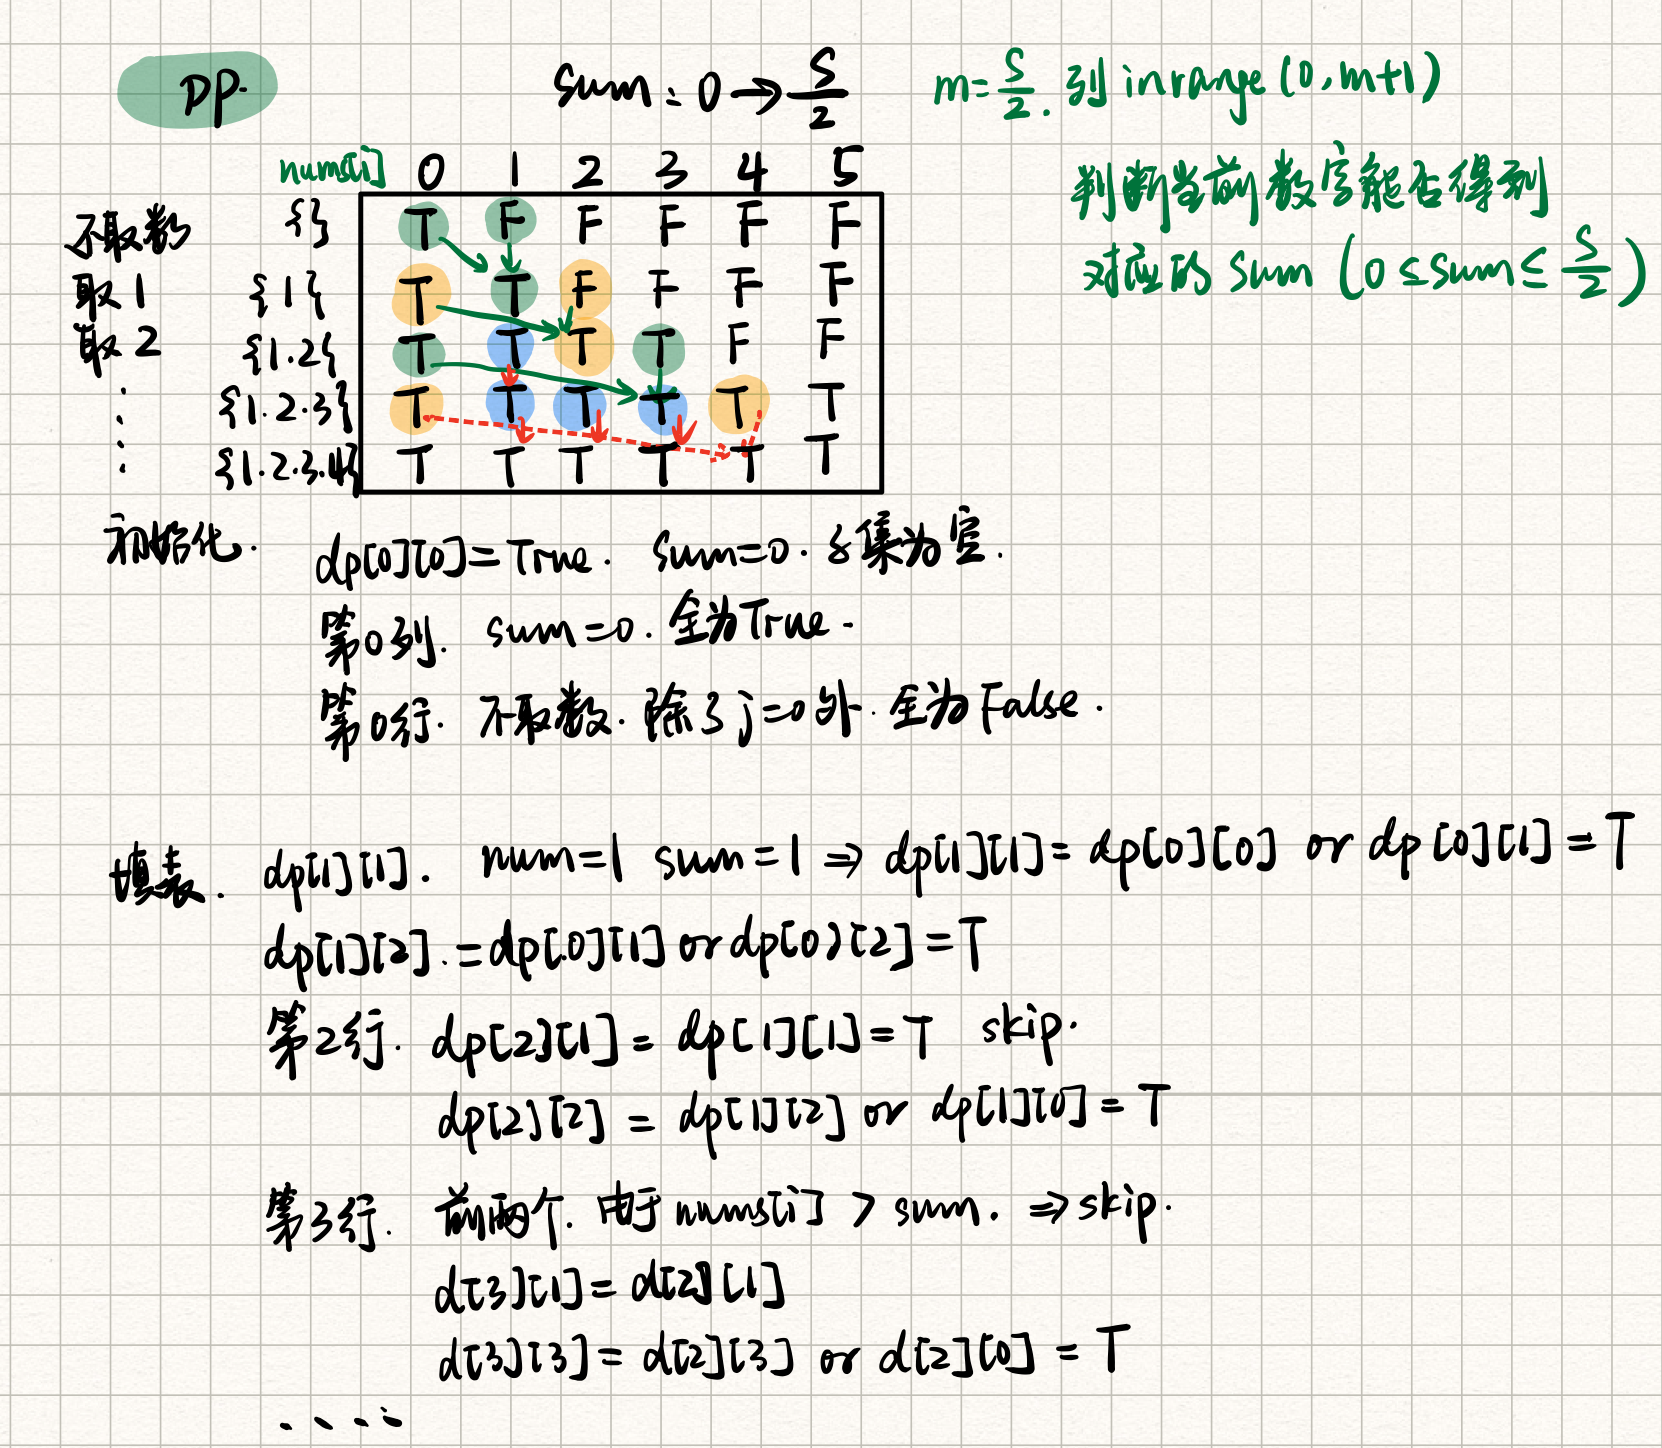 DP.
sum: 0 → S/2
m=S/2. 列 in range (0, m+1)
判断当前数字能否得到
对应的 sum (0 ≤ sum ≤ S/2)
nums[i] 0 1 2 3 4 5
不取数 {} T F F F F F
取1 {1} T T F F F F
取2 {1.2} T T T T F F
⋮ {1.2.3} T T T T T T
⋮ {1.2.3.4} T T T T T T
初始化. dp[0][0]=True. sum=0. 子集为空.
第0列. sum=0. 全为True.
第0行. 不取数. 除了j=0外. 全为False.
填表. dp[1][1]. num=1 sum=1 ⇒ dp[1][1]= dp[0][0] or dp[0][1]=T
dp[1][2].=dp[0][1] or dp[0][2]=T
第2行. dp[2][1]= dp[1][1]=T skip.
dp[2][2] = dp[1][2] or dp[1][0]=T
第3行. 前两个. 由于 nums[i] > sum. ⇒ skip.
d[3][1]= d[2][1]
d[3][3]= d[2][3] or d[2][0] = T
.....